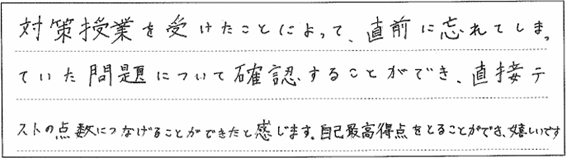 対策授業を受けたことによって、直前に忘れてしまっ
ていた問題について確認することができ、直接テ
ストの点数につなげることができたと感じます。自己最高得点をとることができ、嬉しいです